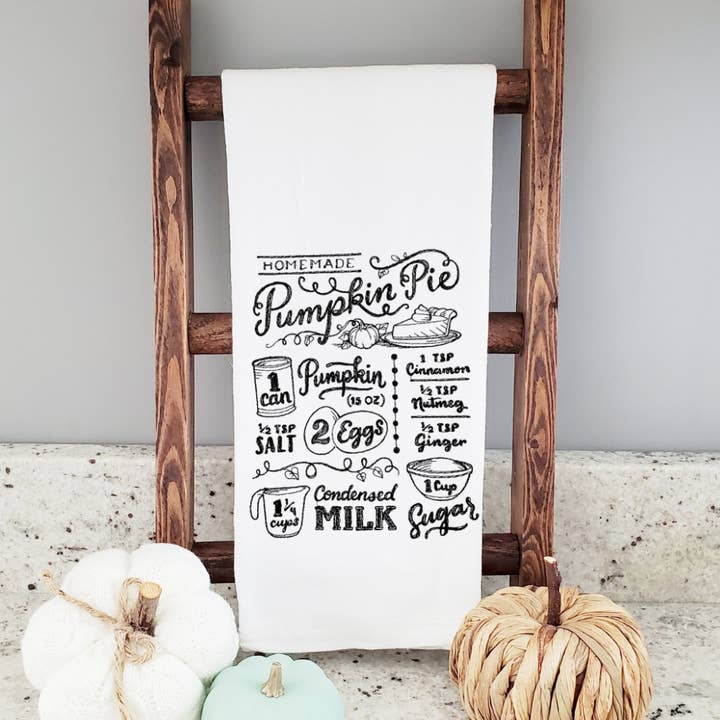 HOMEMADE
Pumpkin Pie
1
can
Pumpkin
(15 OZ)
½ TSP
SALT
2 Eggs
1 TSP
Cinnamon
½ TSP
Nutmeg
½ TSP
Ginger
1 ¼
cups
Condensed
MILK
1 Cup
Sugar